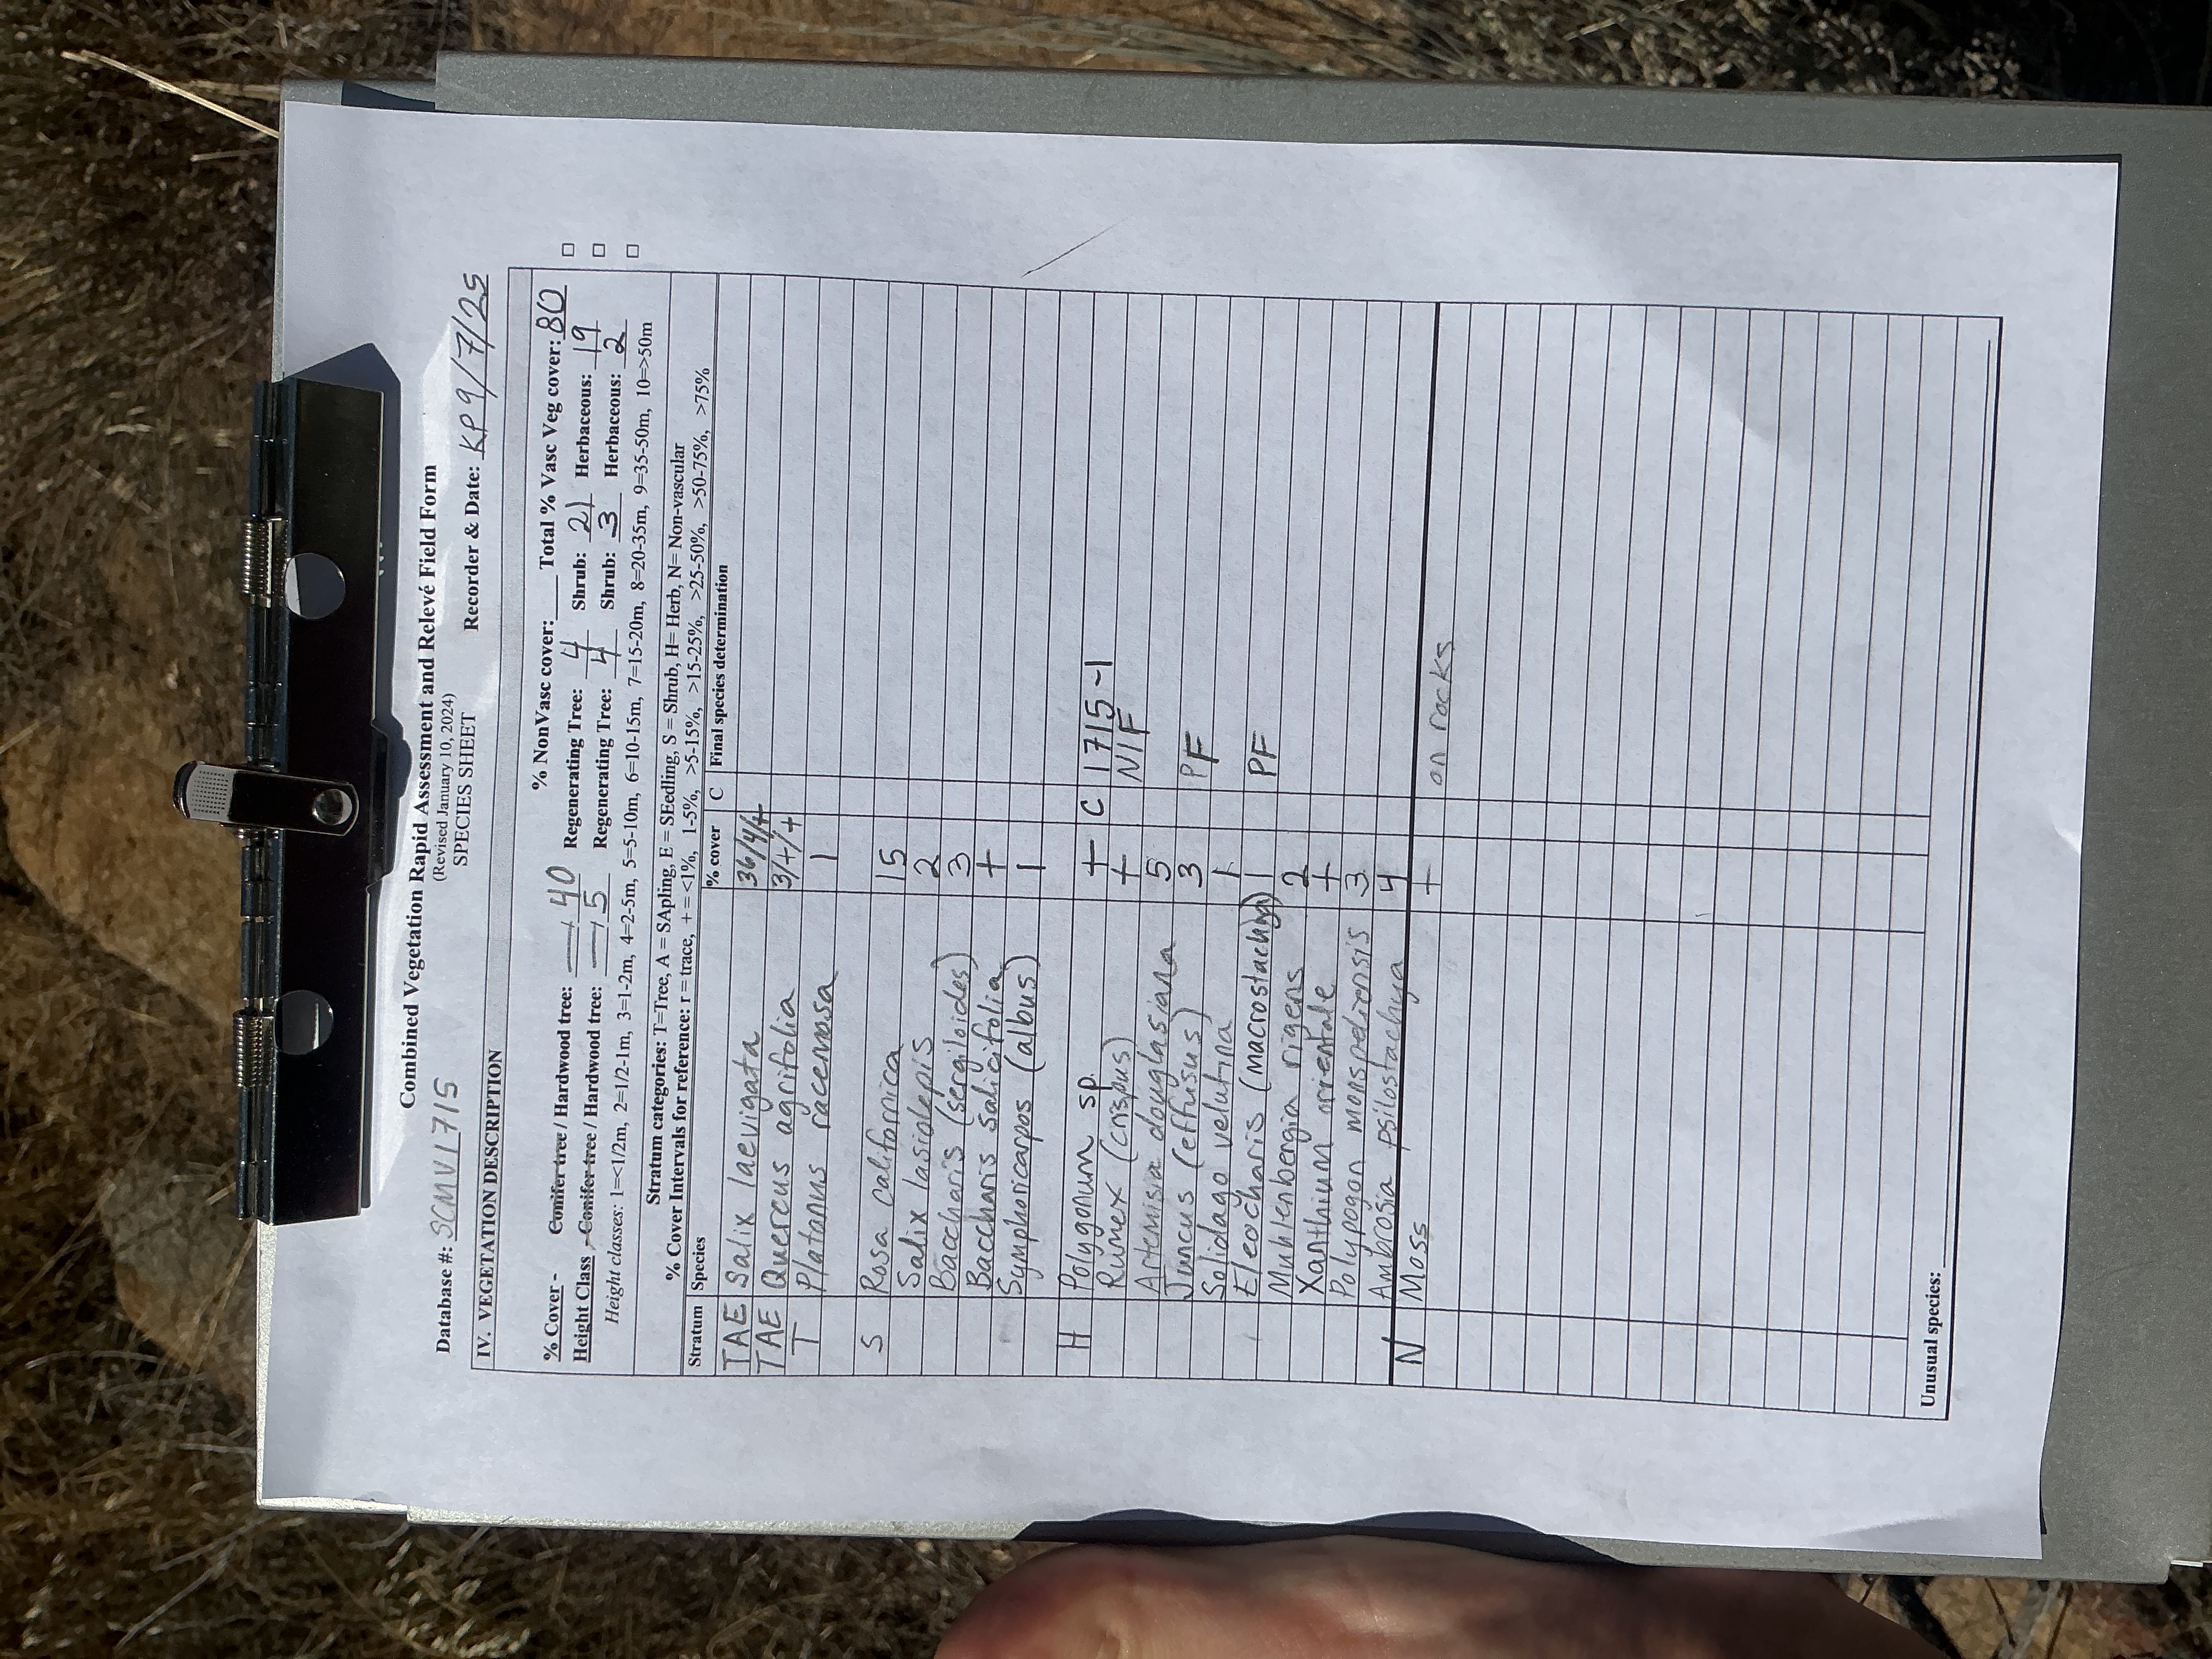 Combined Vegetation Rapid Assessment and Relevé Field Form
(Revised January 10, 2024)
SPECIES SHEET
Database #: SCMV1715 Recorder & Date: KP 9/7/25
IV. VEGETATION DESCRIPTION
% NonVasc cover: ____ Total % Vasc Veg cover: 80
% Cover - Conifer tree / Hardwood tree: — / 40 Regenerating Tree: 4 Shrub: 21 Herbaceous: 19
Height Class - Conifer tree / Hardwood tree: — / 5 Regenerating Tree: 4 Shrub: 3 Herbaceous: 2
Height classes: 1=<1/2m, 2=1/2-1m, 3=1-2m, 4=2-5m, 5=5-10m, 6=10-15m, 7=15-20m, 8=20-35m, 9=35-50m, 10=>50m
Stratum categories: T=Tree, A = SApling, E = SEedling, S = Shrub, H= Herb, N= Non-vascular
% Cover Intervals for reference: r = trace, + = <1%, 1-5%, >5-15%, >15-25%, >25-50%, >50-75%, >75%
Stratum Species % cover C Final species determination
TAE Salix laevigata 36/4/+
TAE Quercus agrifolia 3/+/+
T Platanus racemosa 1
S Rosa californica 15
Salix lasiolepis 2
Baccharis (sergiloides) 3
Baccharis salicifolia +
Symphoricarpos (albus) 1
H Polygonum sp. + C 1715-1
Rumex (crispus) + NIF
Artemisia douglasiana 5
Juncus (effusus) 3 PF
Solidago velutina 1
Eleocharis (macrostachya) 1 PF
Muhlenbergia rigens 2
Xanthium orientale +
Polypogon monspeliensis 3
Ambrosia psilostachya 4
N Moss + on rocks
Unusual species: